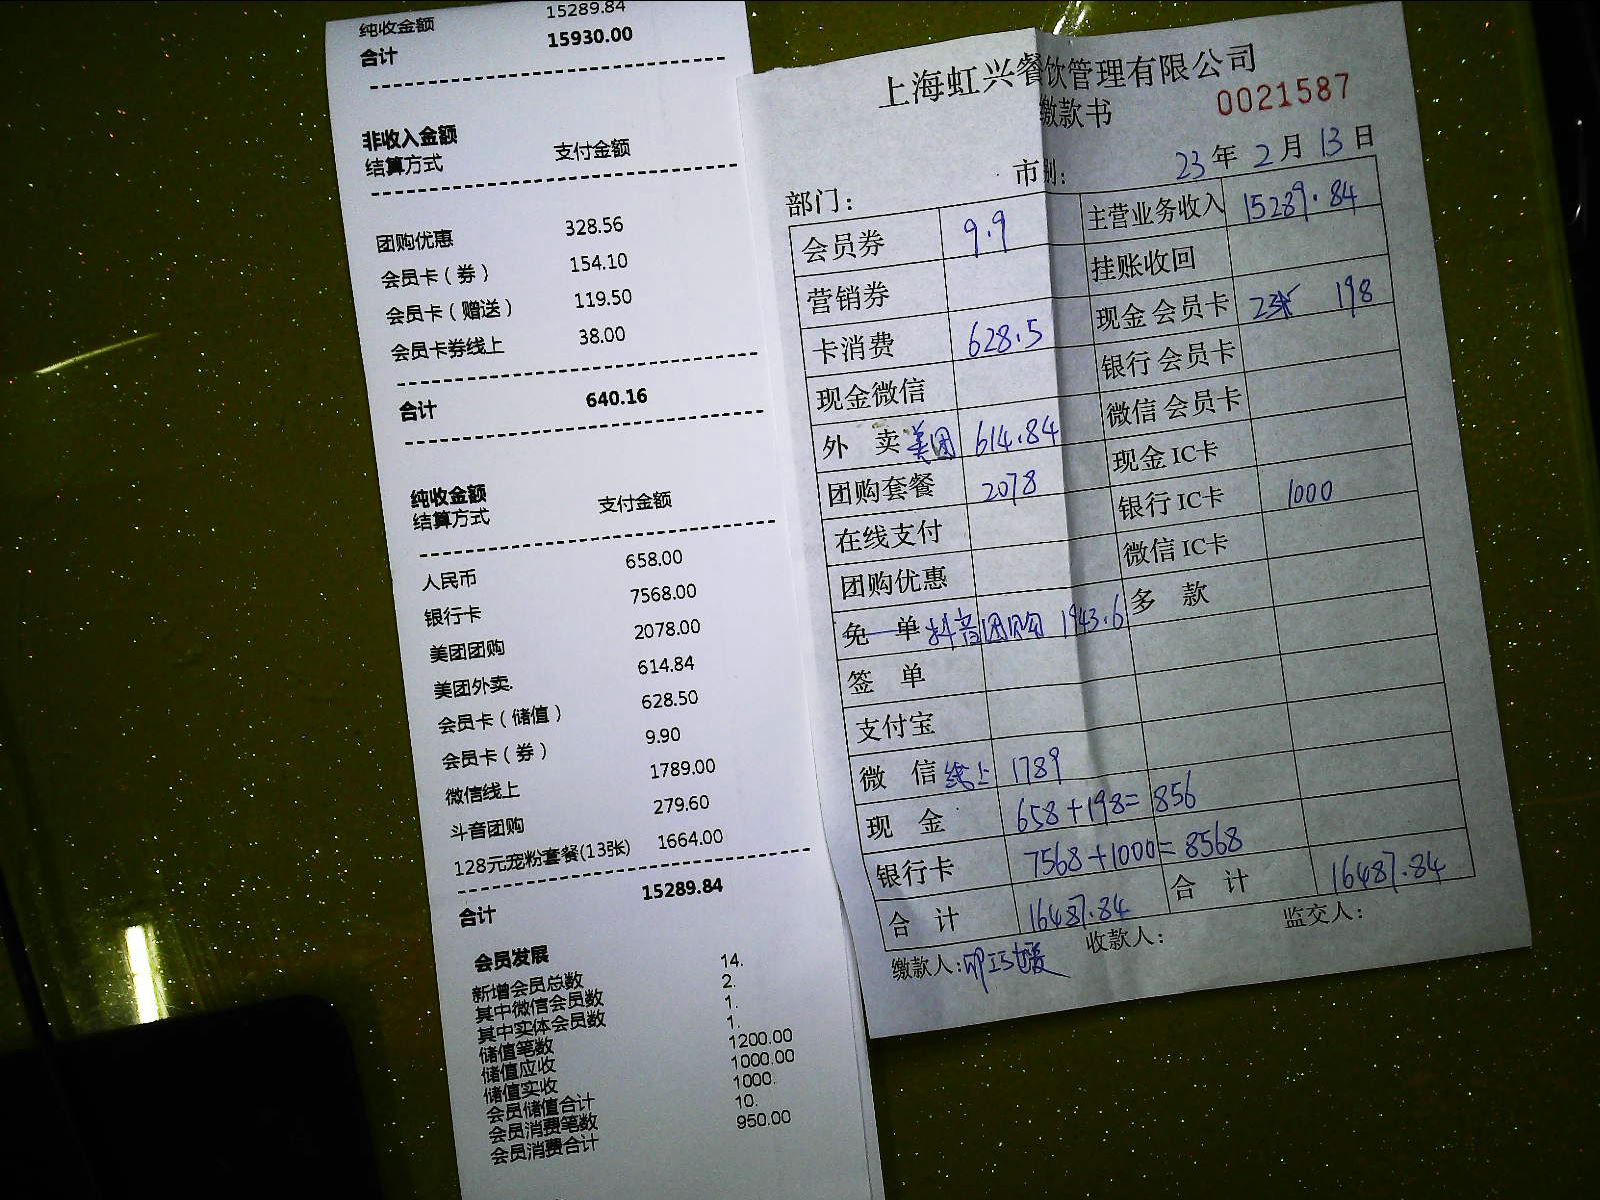 纯收金额 15289.84
合计 15930.00
非收入金额
结算方式 支付金额
团购优惠 328.56
会员卡（券） 154.10
会员卡（赠送） 119.50
会员卡券线上 38.00
合计 640.16
纯收金额
结算方式 支付金额
人民币 658.00
银行卡 7568.00
美团团购 2078.00
美团外卖. 614.84
会员卡（储值） 628.50
会员卡（券） 9.90
微信线上 1789.00
斗音团购 279.60
128元宠粉套餐(13张) 1664.00
合计 15289.84
会员发展
新增会员总数 14.
其中微信会员数 2.
其中实体会员数 1.
储值笔数 1.
储值应收 1200.00
储值实收 1000.00
会员储值合计 1000.
会员消费笔数 10.
会员消费合计 950.00
上海虹兴餐饮管理有限公司
缴款书 0021587
部门： 市别： 23年2月13日
会员券 9.9 主营业务收入 15289.84
营销券 挂账收回
卡消费 628.5 现金 会员卡 2张 198
现金微信 银行 会员卡
外 卖 美团 614.84 微信 会员卡
团购套餐 2078 现金 IC卡
在线支付 银行 IC卡 1000
团购优惠 微信 IC卡
免 单 抖音团购 1943.6 多 款
签 单
支付宝
微 信 线上 1789
现 金 658+198=856
银行卡 7568+1000=8568
合 计 16487.84 合 计 16487.84
缴款人： 收款人： 监交人：